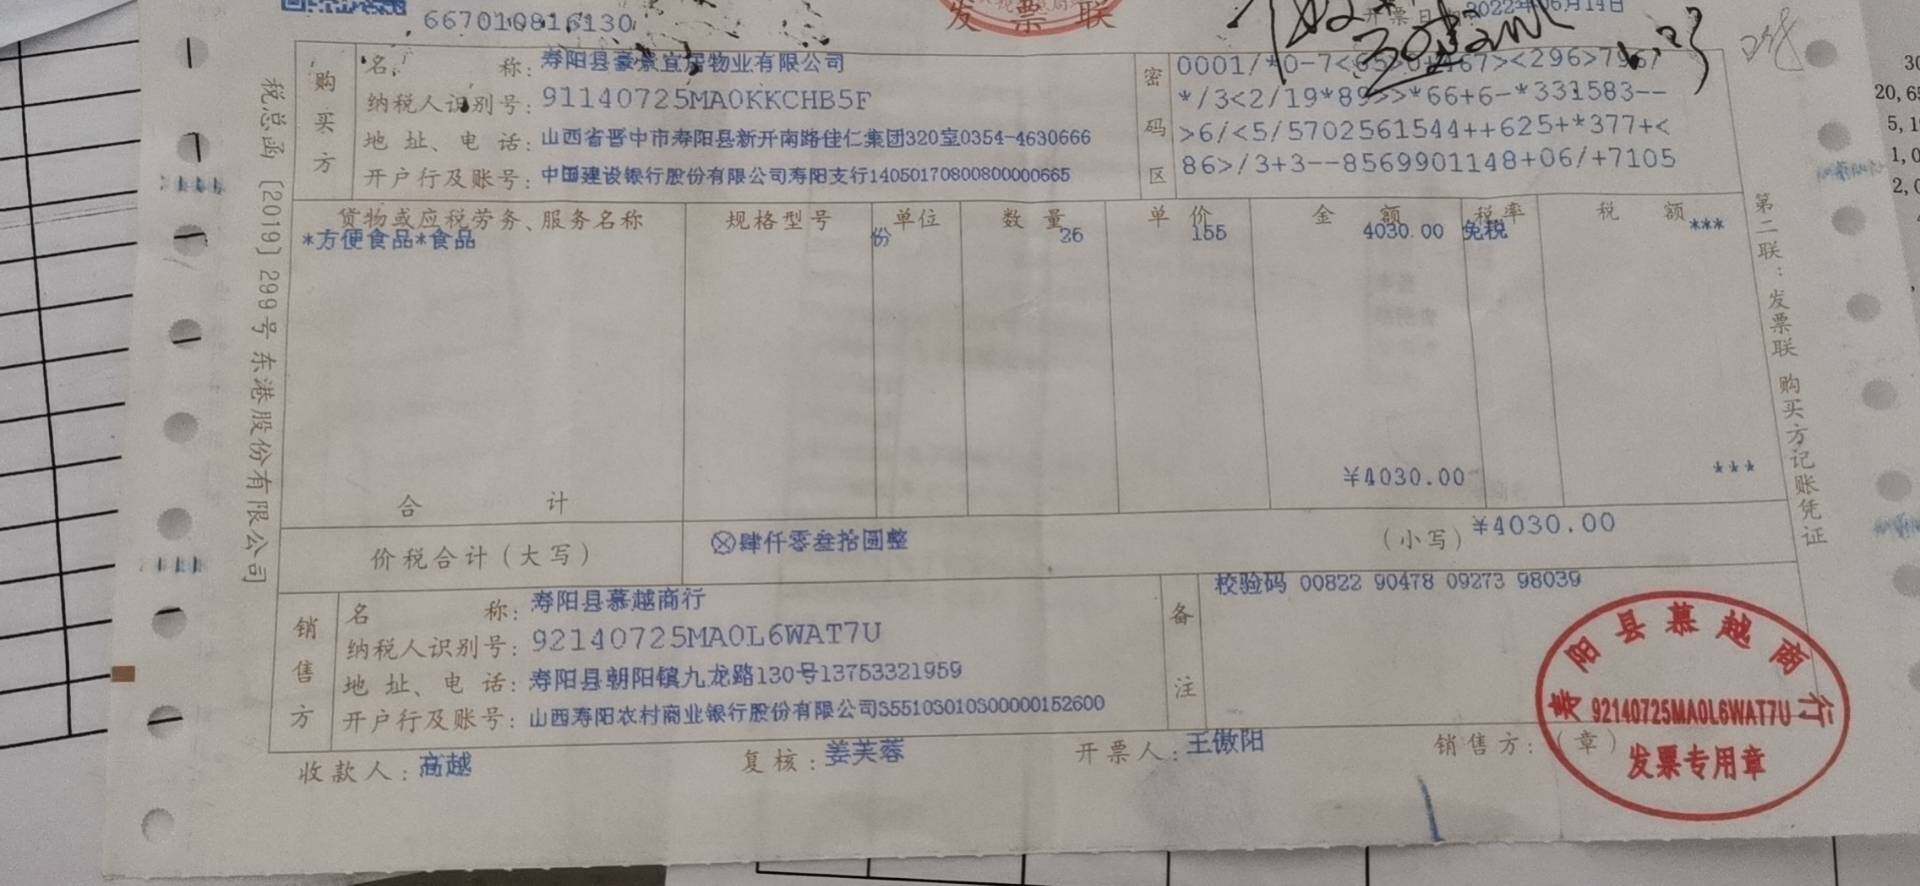 667010816130
发票联
开票日 2022年06月14日
购买方
名称：寿阳县豪景宜居物业有限公司
纳税人识别号：91140725MA0KKCHB5F
地址、电话：山西省晋中市寿阳县新开南路佳仁集团320室0354-4630666
开户行及账号：中国建设银行股份有限公司寿阳支行14050170800800000665
密码区
0001/*0-7<65>0+467><296>796/
*/3<2/19*89>>*66+6-*331583--
>6/<5/5702561544++625+*377+<
86>/3+3--8569901148+06/+7105
货物或应税劳务、服务名称 规格型号 单位 数量 单价 金额 税率 税额
*方便食品*食品 份 26 155 4030.00 免税 ***
合计 ¥4030.00 ***
价税合计（大写） ⊗肆仟零叁拾圆整 （小写）¥4030.00
销售方
名称：寿阳县慕越商行
纳税人识别号：92140725MA0L6WAT7U
地址、电话：寿阳县朝阳镇九龙路130号13753321959
开户行及账号：山西寿阳农村商业银行股份有限公司355103010300000152600
备注
校验码 00822 90478 09273 98039
收款人：高越 复核：姜芙蓉 开票人：王傲阳 销售方：（章）
寿阳县慕越商行
92140725MA0L6WAT7U
发票专用章
税总函〔2019〕299号 东港股份有限公司
第二联：发票联 购买方记账凭证
20,65